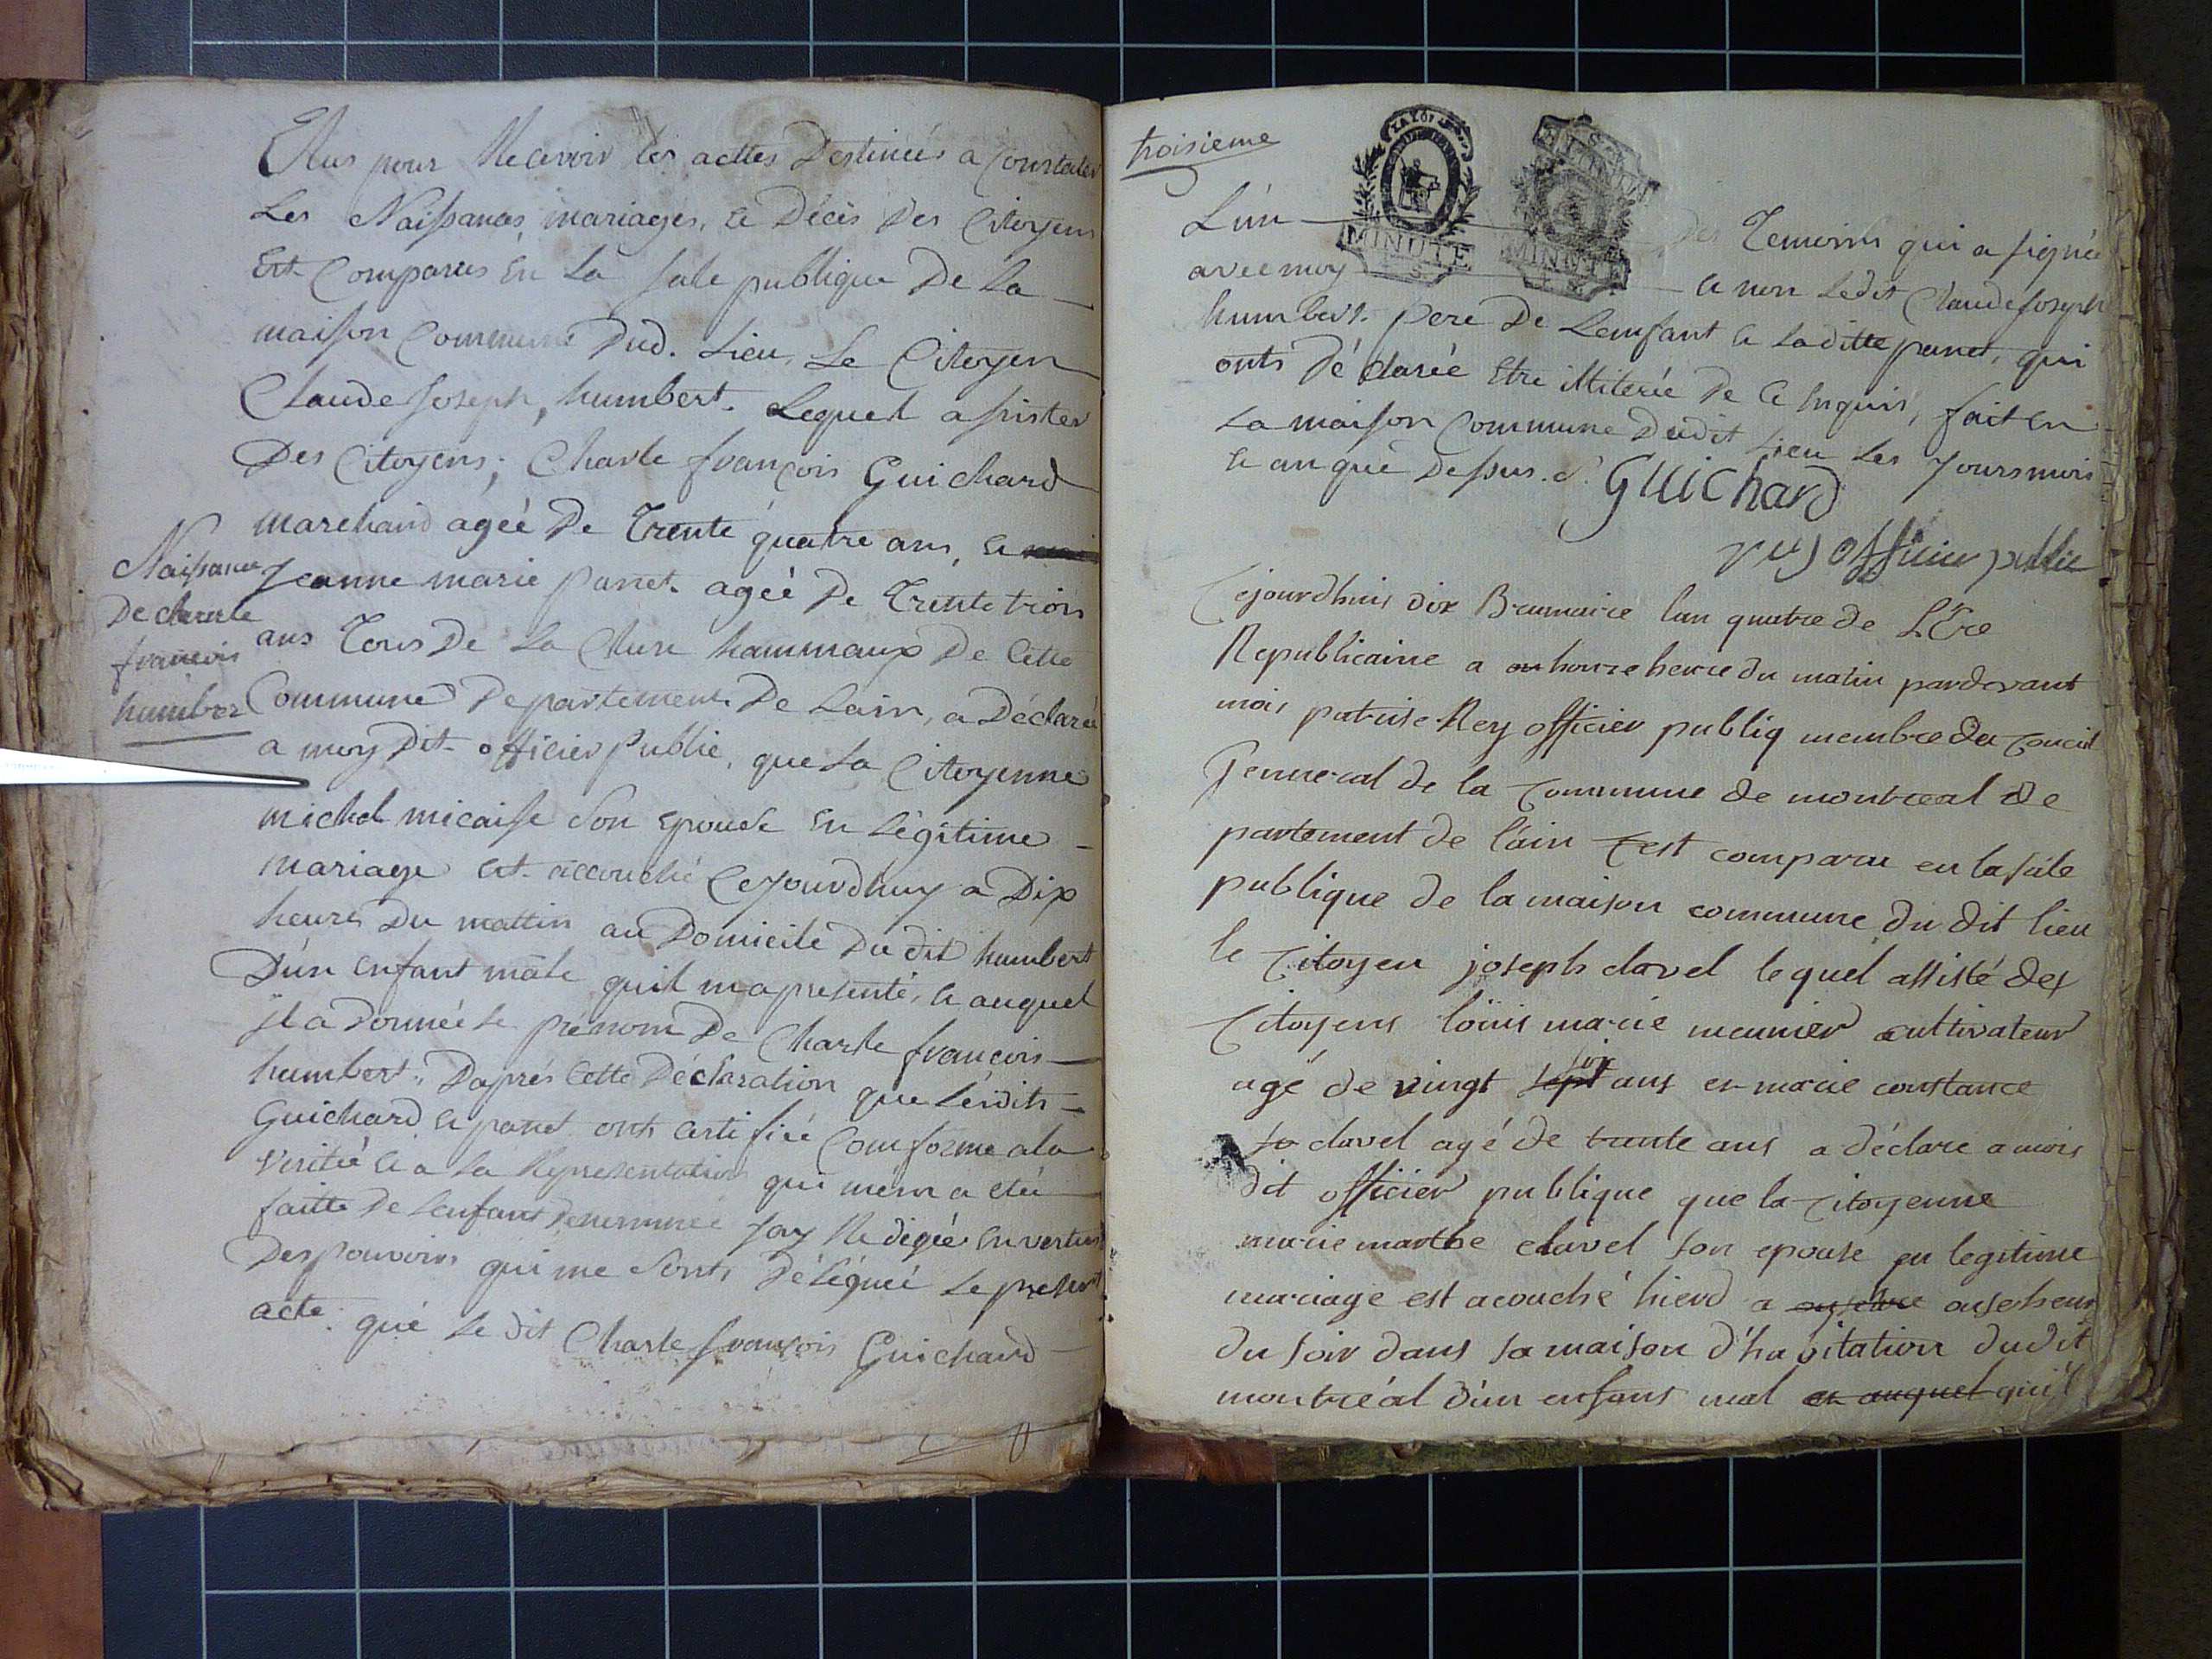 Elus pour Recevoir les actes Destinées a Constater
Les Naissances, mariages, et Décés Des Citoyens
Est Comparus En La sale publique De La
maison Commune Dud. Lieu, Le Citoyen
Claude Joseph, humbert. Lequel assister
Des Citoyens, Charle françois Guichard
marchand ageé De Trente quatre ans, et
Jeanne marie panet. ageé De Trente trois
ans Tous De La Cluse hammaux De Cette
Commune Departement De Lain, a Déclareé
a moy Dit officier Public, que La Citoyenne
michel micaisse Son Epouse En Légitime
mariage Est accouché Cejourdhuy a Dix
heures Du mattin au Domicile Du dit humbert
D'un Enfant mâle quil ma presenté, et auquel
jl a Donneé le prénom De Charle françois
humbert. Daprés Cette Déclaration que lésdits
Guichard et panet onts Certifieé Comforme a la
Verité et a La Representation qui mén a eté
faitte De Lenfant Denommeé Jay Redigée En vertus
Des pouvoirs qui me Sonts Délégueé Le present
acte. que Le dit Charle françois Guichard
Naissance
De charle
francois
humber
troisieme
L'un des Temoins qui a signeé
avec moy et non Ledit Claude Joseph
humbert pere De Lenfant et Laditte panet, qui
onts Déclareé Etre illitereé De ce Enquis, fait En
La maison Commune Dudit Lieu Les Jours mois
et an que Dessus.
MINUTE
MINUTE
Guichard
rey officier public
Cejourdhuis dix Brumaire lan quatre de L'Ere
Republicaine a onhouze heure du matin pardevant
mois patrise Rey officier publiq membre du Conceil
Jenneral de la Commune de montreal de
partement de l'ain C'est comparu en la sale
publique de la maison commune du dit lieu
le Citoyen joseph clavel le quel assisté des
Citoyens löuis marie meunier cultivateur
agé de vingt sept six ans et marie constance
jo clavel agé de trante ans a déclare a mois
dit officier publique que la Citoyenne
marie marthe clavel son epouse en legitime
mariage est acouché hierd a onseheure onseheur
du soir dans sa maison d'habitation dudit
montréal d'un enfans mal et auquel qu'il